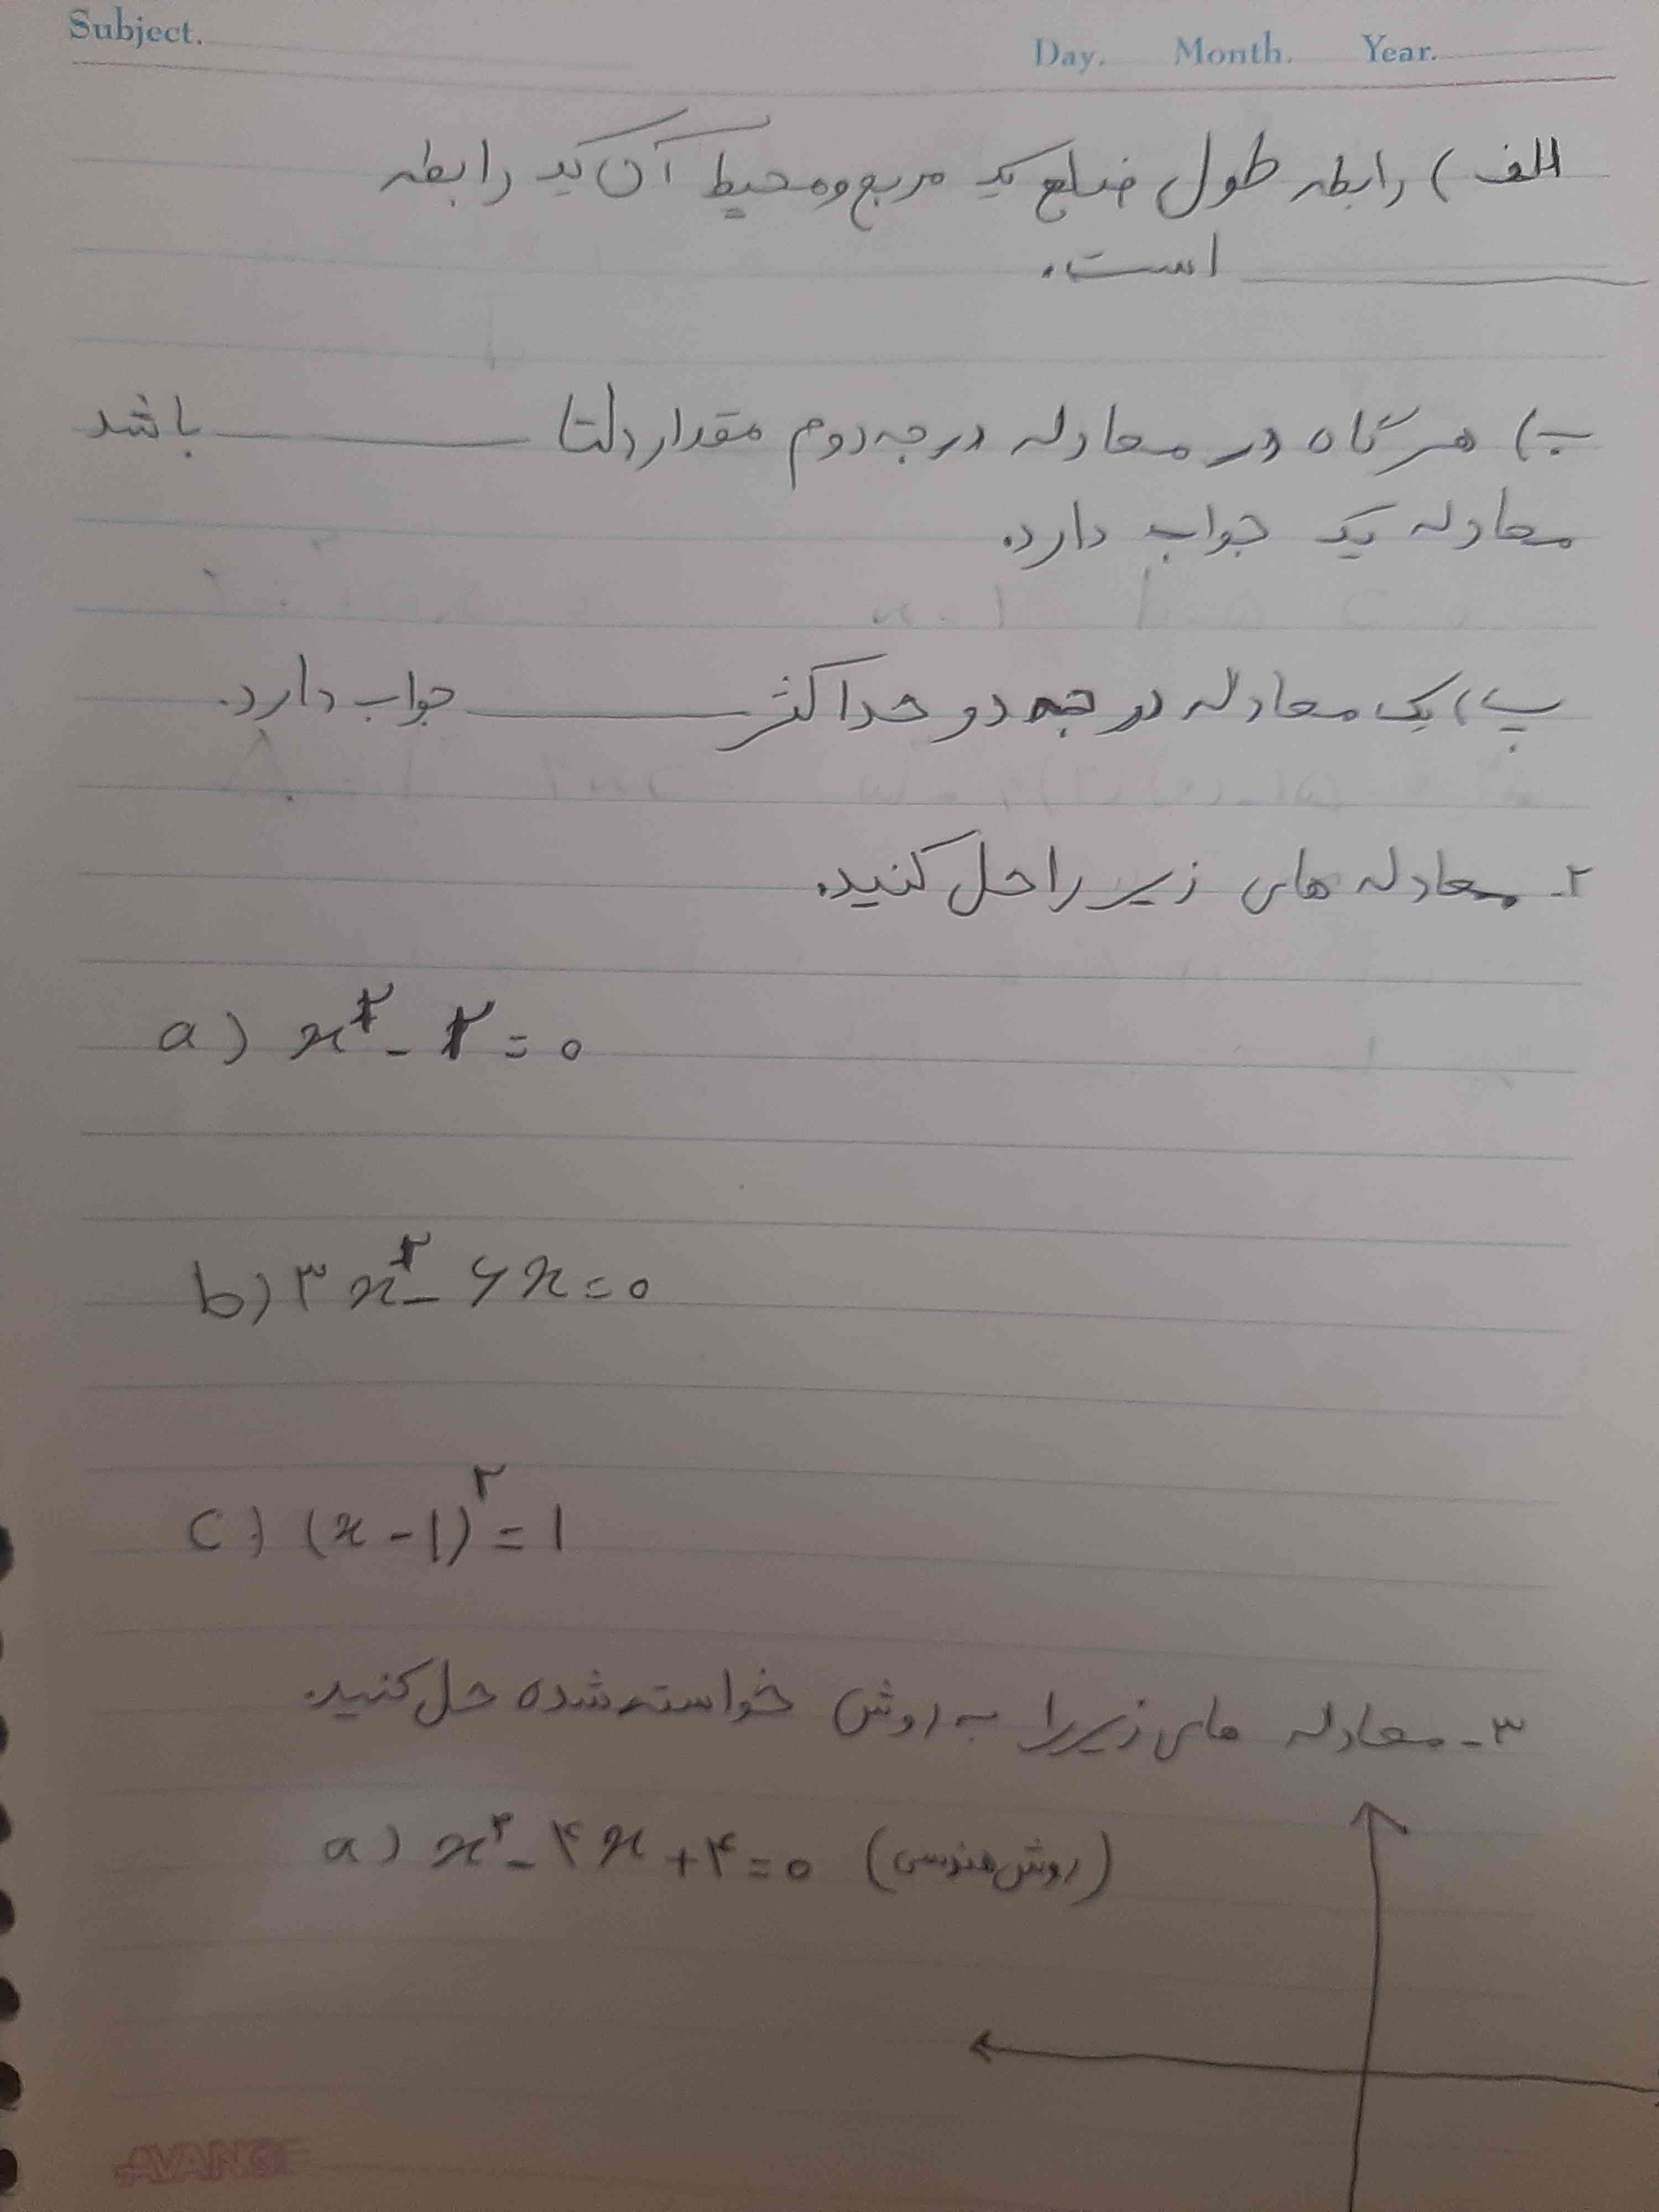 Subject.
Day. Month. Year.
الف) رابطه طول ضلع یک مربع و محیط آن یک رابطه
________ است.
ب) هرگاه در معادله درجه دوم مقدار دلتا ________ باشد
معادله یک جواب دارد.
پ) یک معادله درجه دو حداکثر ________ جواب دارد.
۲- معادله های زیر را حل کنید.
a) x² - ۲ = ۰
b) ۳x² - ۶x = ۰
c) (x - ۱)² = ۱
۳- معادله های زیر را به روش خواسته شده حل کنید.
a) x² - ۴x + ۴ = ۰ (روش هندسی)